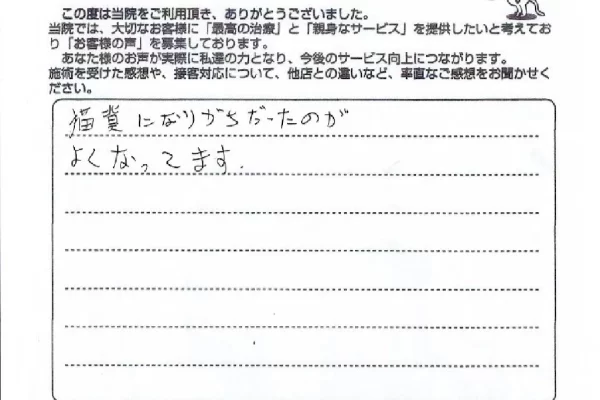 この度は当院をご利用頂き、ありがとうございました。
当院では、大切なお客様に「最高の治療」と「親身なサービス」を提供したいと考えてお
り「お客様の声」を募集しております。
あなた様のお声が実際に私達の力となり、今後のサービス向上につながります。
施術を受けた感想や、接客対応について、他店との違いなど、率直なご感想をお聞かせく
ださい。
猫糞になりがちだったのが
よくなってます.